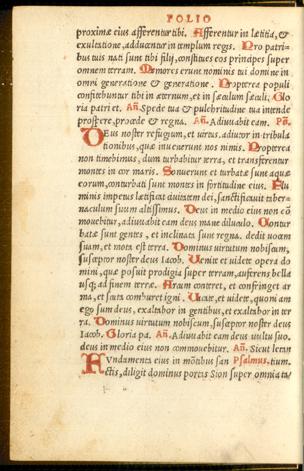 FOLIO
proximæ eius afferentur tibi. Afferentur in lætitia, &
exultatione, adducentur in templum regis. Pro patri-
bus tuis nati sunt tibi filij, constitues eos principes super
omnem terram. Memores erunt nominis tui domine in
omni generatione & generatione. Propterea populi
confitebuntur tibi in æternum, et in sæculum sæculi. Glo
ria patri et. Añ. Specie tua & pulchritudine tua intende
prospere, procede & regna. Añ. Adiuvabit eam. Ps.
DEus noster refugium, et virtus, adiutor in tribula
tionibus, quæ invenerunt nos nimis. Propterea
non timebimus, dum turbabitur terra, et transferentur
montes in cor maris. Sonuerunt et turbatæ sunt aquæ
eorum, conturbati sunt montes in fortitudine eius. Flu
minis impetus lætificat civitatem dei, sanctificavit taber-
naculum suum altissimus. Deus in medio eius non cõ
movebitur, adiuvabit eam deus mane diluculo. Contur
batæ sunt gentes, et inclinata sunt regna, dedit vocem
suam, et mota est terra. Dominus virtutum nobiscum,
susceptor noster deus Iacob. Venite et videte opera do
mini, quæ posuit prodigia super terram, auferens bella
usq; ad finem terræ. Arcum conteret, et confringet ar
ma, et scuta comburet igni. Vacate, et videte, quoniam
ego sum deus, exaltabor in gentibus, et exaltabor in ter
ra. Dominus virtutum nobiscum, susceptor noster deus
Iacob. Gloria pa. Añ. Adiuvabit eam deus vultu suo.
deus in medio eius non commovebitur. Añ. Sicut letan
FVndamenta eius in mõtibus san Psalmus. tium.
ctis, diligit dominus portas Sion super omnia ta/